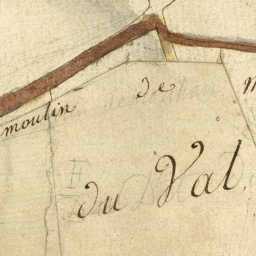 moulin de
du Val